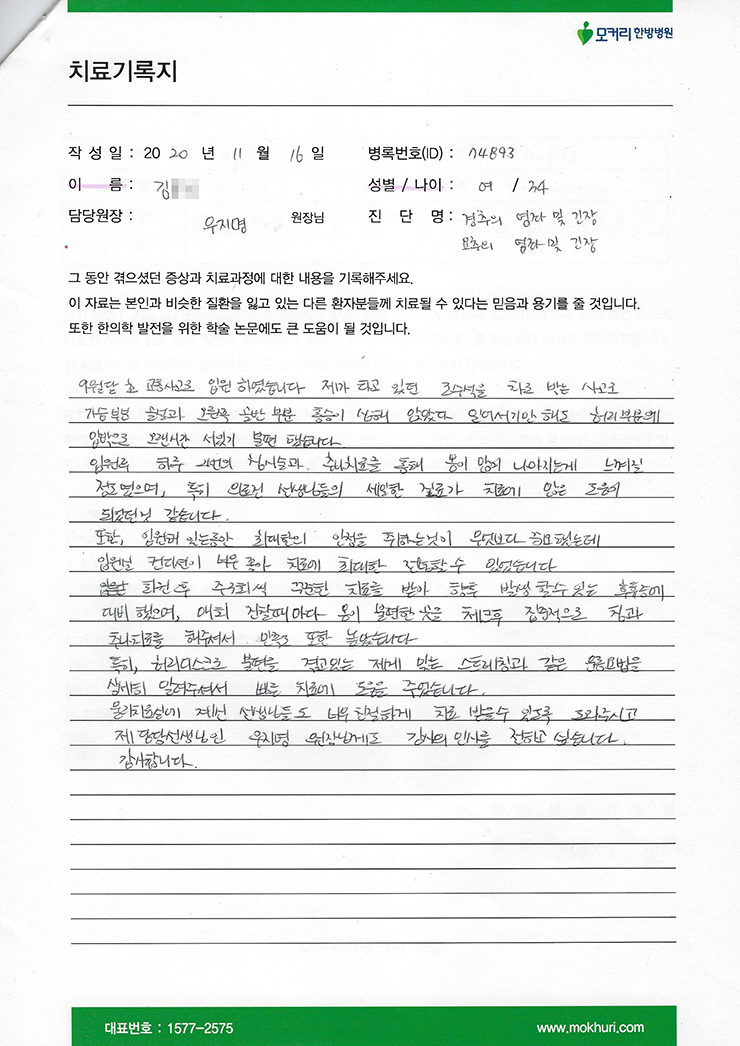 모커리한방병원
치료기록지
작 성 일 : 20 20 년 11 월 16 일 병록번호(ID) : 74893
이 름 : 김 성별 / 나이 : 여 / 34
담당원장 : 우지명 원장님 진 단 명 : 경추의 염좌 및 긴장
요추의 염좌 및 긴장
그 동안 겪으셨던 증상과 치료과정에 대한 내용을 기록해주세요.
이 자료는 본인과 비슷한 질환을 잃고 있는 다른 환자분들께 치료될 수 있다는 믿음과 용기를 줄 것입니다.
또한 한의학 발전을 위한 학술 논문에도 큰 도움이 될 것입니다.
9월달 초 교통사고로 입원 하였습니다 제가 타고 있던 조수석을 차로 박는 사고로
가슴부분 골절과 오른쪽 골반 부분 통증이 심해 않았았다 일어서기만 해도 허리부분에
압박으로 오랜시간 서있기 불편 했습니다
입원후 하루 2번의 침시술과 추나치료를 통해 몸이 많이 나아지는게 느껴질
정도 였으며, 특히 의료진 선생님들의 세밀한 진료가 치료에 많은 도움이
되었던것 같습니다.
또한, 입원해 있는동안 최대한의 안정을 취하는것이 무엇보다 중요했는데
입원실 컨디션이 너무 좋아 치료에 최대한 집중할 수 있었습니다
퇴원 후 주3회씩 꾸준한 치료를 받아 향후 발생 할수 있는 후유증에
대비 했으며, 매회 진찰때 마다 몸이 불편한 곳을 체크후 집중적으로 침과
추나치료를 해주셔서 만족도 또한 높았습니다
특히, 허리디스크로 불편을 겪고있는 제게 맞는 스트레칭과 같은 운동요법을
상세히 알려주셔서 빠른 치료에 도움을 주었습니다.
물리치료실에 계신 선생님들도 너무 친절하게 치료 받을수 있도록 도와주시고
제 담당선생님인 우지명 원장님께도 감사의 인사를 전하고 싶습니다.
감사합니다.
대표번호 : 1577-2575 www.mokhuri.com